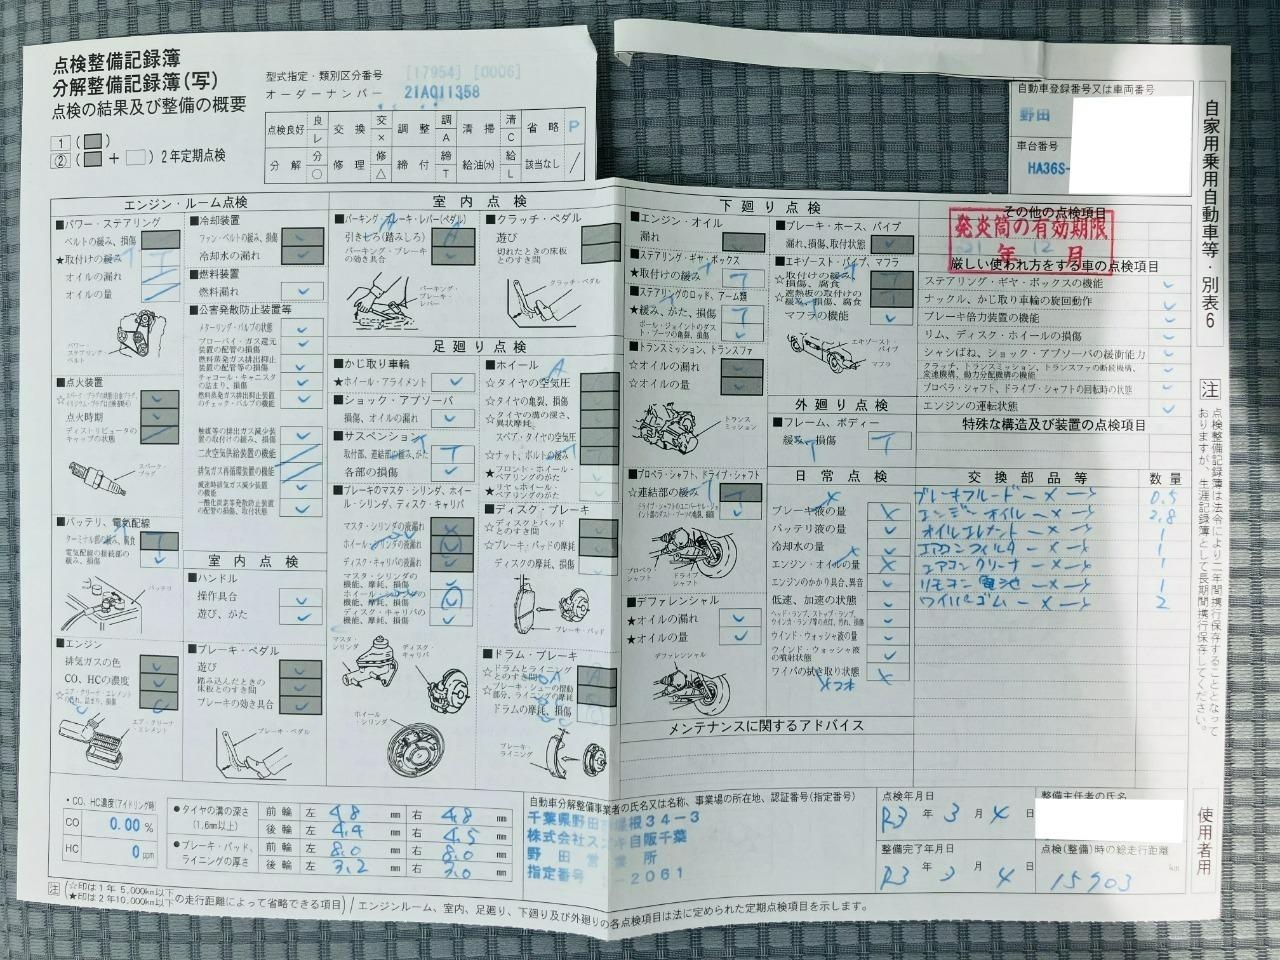 点検整備記録簿
分解整備記録簿(写)
点検の結果及び整備の概要
1 ( )
② ( + ) 2年定期点検
型式指定・類別区分番号 [17954] [0006]
オーダーナンバー 21AQ11358
点検良好 良 レ 交換 交 × 調整 調 A 清掃 清 C 省略 P
分解 分 ○ 修理 修 △ 締付 締 T 給油(水) 給 L 該当なし /
自動車登録番号又は車両番号
野田
車台番号
HA36S-
自家用乗用自動車等・別表6
エンジン・ルーム点検
■パワー・ステアリング
ベルトの緩み、損傷
★取付けの緩み T
オイルの漏れ
オイルの量
パワー・ステアリング・ベルト
■点火装置
点火時期
ディストリビュータのキャップの状態
スパーク・プラグ
■バッテリ、電気配線
ターミナル部の緩み、腐食
電気配線の接続部の緩み、損傷
バッテリ
■エンジン
排気ガスの色
CO、HCの濃度
☆エア・クリーナ・エレメントの汚れ、詰まり、損傷
エア・クリーナ・エレメント
■冷却装置
ファン・ベルトの緩み、損傷
冷却水の漏れ
■燃料装置
燃料漏れ
■公害発散防止装置等
メターリング・バルブの状態
ブローバイ・ガス還元装置の配管の損傷
燃料蒸発ガス排出抑止装置の配管等の損傷
チャコール・キャニスタの詰まり、損傷
燃料蒸発ガス排出抑止装置のチェック・バルブの機能
触媒等の排出ガス減少装置の取付けの緩み、損傷
二次空気供給装置の機能
排気ガス再循環装置の機能
減速時排気ガス減少装置の機能
一酸化炭素等発散防止装置の配管の損傷、取付状態
室内点検
■ハンドル
操作具合
遊び、がた
■ブレーキ・ペダル
遊び
踏み込んだときの床板とのすき間
ブレーキの効き具合
ブレーキ・ペダル
室内点検
■パーキング・ブレーキ・レバー(ペダル)
引きしろ(踏みしろ) A
パーキング・ブレーキの効き具合
パーキング・ブレーキ・レバー
■クラッチ・ペダル
遊び
切れたときの床板とのすき間
クラッチ・ペダル
足廻り点検
■かじ取り車輪
★ホイール・アライメント
■ショック・アブソーバ
損傷、オイルの漏れ
■サスペンション
取付部、連結部の緩み、がた T
各部の損傷
■ブレーキのマスタ・シリンダ、ホイール・シリンダ、ディスク・キャリパ
マスタ・シリンダの液漏れ
ホイール・シリンダの液漏れ
ディスク・キャリパの液漏れ
マスタ・シリンダの機能、摩耗、損傷
ホイール・シリンダの機能、摩耗、損傷
ディスク・キャリパの機能、摩耗、損傷
マスタ・シリンダ
ディスク・キャリパ
ホイール・シリンダ
■ホイール
☆タイヤの空気圧
☆タイヤの亀裂、損傷
☆タイヤの溝の深さ、異状摩耗
スペア・タイヤの空気圧
☆ナット、ボルトの緩み
★フロント・ホイール・ベアリングのがた
★リヤ・ホイール・ベアリングのがた
■ディスク・ブレーキ
☆ディスクとパッドとのすき間
☆ブレーキ・パッドの摩耗
ディスクの摩耗、損傷
ブレーキ・パッド
■ドラム・ブレーキ
☆ドラムとライニングとのすき間
☆ブレーキ・シューの摺動部分、ライニングの摩耗
ドラムの摩耗、損傷
ブレーキ・ライニング
下廻り点検
■エンジン・オイル
漏れ
■ステアリング・ギヤ・ボックス
★取付けの緩み T
■ステアリングのロッド、アーム類
★緩み、がた、損傷 T
ボール・ジョイントのダスト・ブーツの亀裂、損傷
■トランスミッション、トランスファ
☆オイルの漏れ
☆オイルの量
トランスミッション
■プロペラ・シャフト、ドライブ・シャフト
☆連結部の緩み T
ドライブ・シャフトのユニバーサル・ジョイント部のダスト・ブーツの亀裂、損傷
プロペラシャフト
ドライブシャフト
■デファレンシャル
★オイルの漏れ
★オイルの量
デファレンシャル
■ブレーキ・ホース、パイプ
漏れ、損傷、取付状態
■エキゾースト・パイプ、マフラ
☆取付けの緩み、損傷、腐食
☆遮熱板の取付けの緩み、損傷、腐食
マフラの機能
エキゾースト・パイプ
マフラ
外廻り点検
■フレーム、ボディー
緩み、損傷 T
日常点検
ブレーキ液の量 ×
バッテリ液の量
冷却水の量
エンジン・オイルの量 ×
エンジンのかかり具合、異音
低速、加速の状態
ヘッド・ランプ、ストップ・ランプ、ウインカ・ランプ等の点灯、汚れ、損傷
ウインド・ウォッシャ液の量
ウインド・ウォッシャ液の噴射状態
ワイパの拭き取り状態 ×
その他の点検項目
発炎筒の有効期限
年 月
厳しい使われ方をする車の点検項目
ステアリング・ギヤ・ボックスの機能
ナックル、かじ取り車輪の旋回動作
ブレーキ倍力装置の機能
リム、ディスク・ホイールの損傷
シャシばね、ショック・アブソーバの緩衝能力
クラッチ、トランスミッション、トランスファの断続機構、変速機構、動力分配機構の機能
プロペラ・シャフト、ドライブ・シャフトの回転時の状態
エンジンの運転状態
特殊な構造及び装置の点検項目
交換部品等 数量
ブレーキフルード ー×→ 0.5
エンジンオイル ー×→ 2.8
オイルエレメント ー×→ 1
エアコンフィルタ ー×→ 1
エアコンクリーナ ー×→ 1
リモコン電池 ー×→ 1
ワイパーゴム ー×→ 2
メンテナンスに関するアドバイス
注 点検整備記録簿は法令により二年間携行保存することとなっておりますが、生涯記録簿として長期間携行保存してください。
使用者用
・CO、HC濃度(アイドリング時)
CO 0.00 %
HC 0 ppm
●タイヤの溝の深さ (1.6mm以上) 前輪 左 4.8 mm 右 4.8 mm
後輪 左 4.4 mm 右 4.5 mm
●ブレーキ・パッド、ライニングの厚さ 前輪 左 8.0 mm 右 8.0 mm
後輪 左 3.2 mm 右 3.0 mm
自動車分解整備事業者の氏名又は名称、事業場の所在地、認証番号(指定番号)
千葉県野田市 34-3
株式会社スズキ自販千葉
野田営業所
指定番号 -2061
点検年月日
R3年 3月 4日
整備完了年月日
R3年 3月 4日
整備主任者の氏名
点検(整備)時の総走行距離
15903 km
注 (☆印は1年5,000km以下 ★印は2年10,000km以下の走行距離によって省略できる項目) / エンジンルーム、室内、足廻り、下廻り及び外廻りの各点検項目は法に定められた定期点検項目を示します。